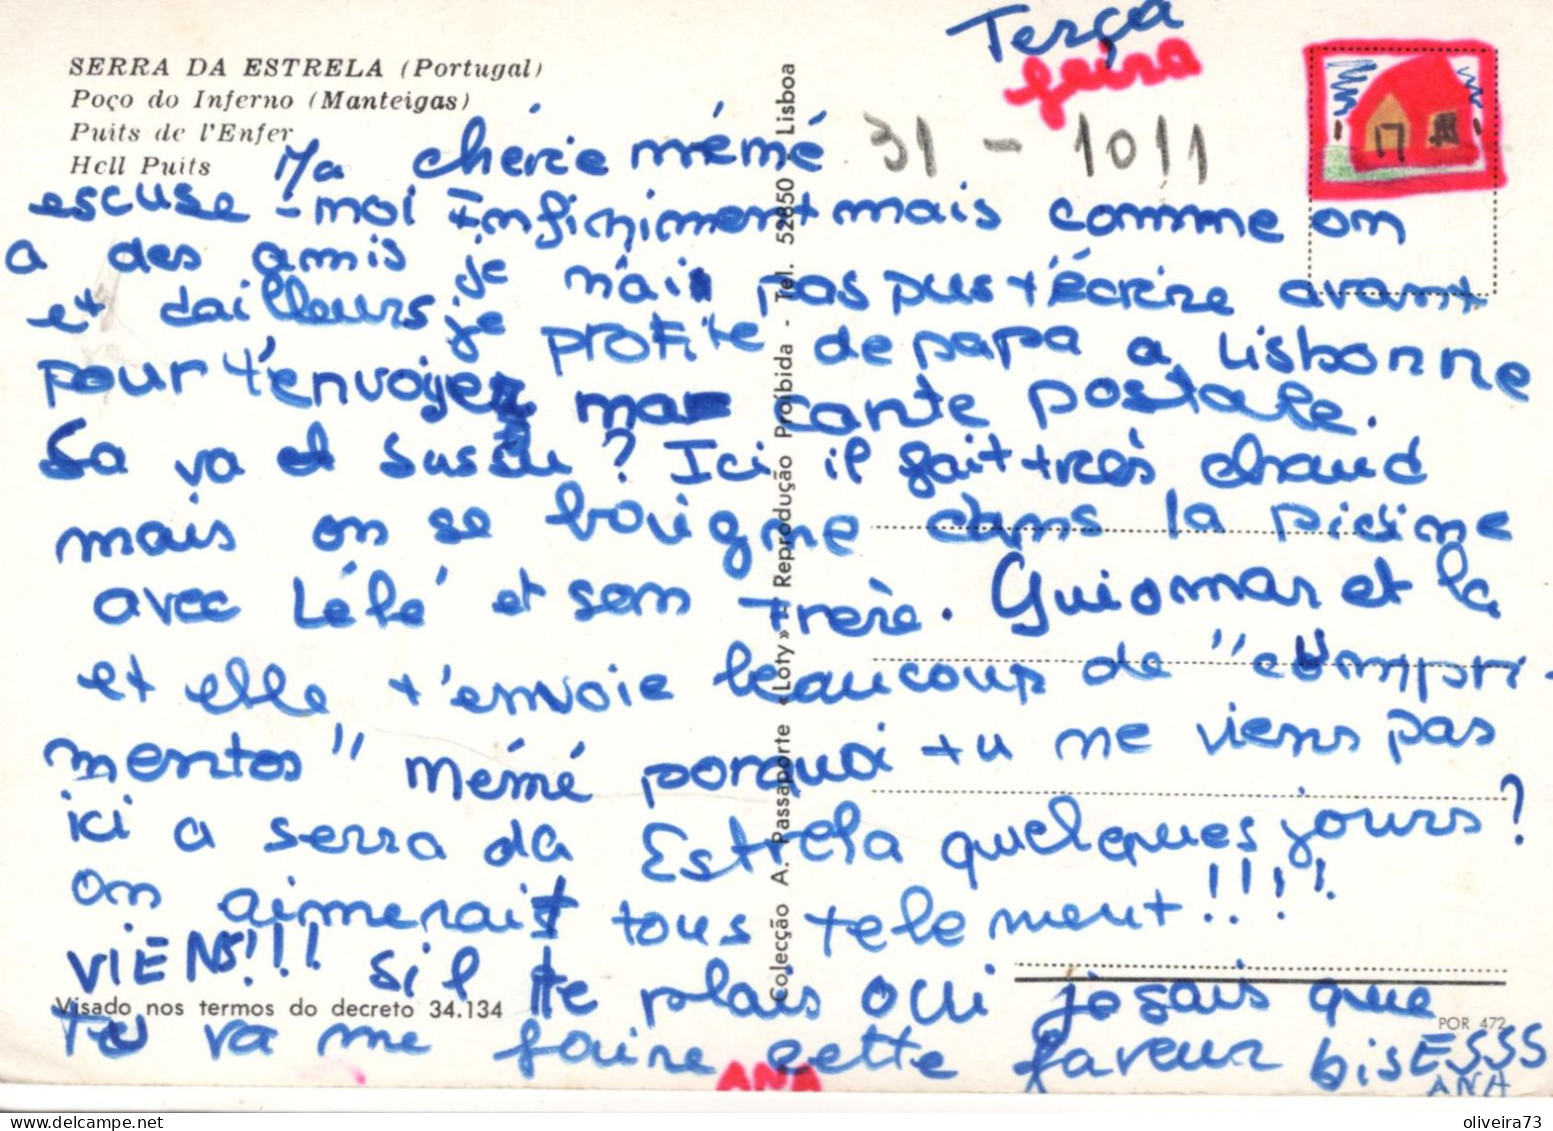 SERRA DA ESTRELA (Portugal)
Poço do Inferno (Manteigas)
Puits de l'Enfer
Hell Puits
Terça
feira
31 - 1011
Ma chérie mémé
escuse-moi infiniment mais comme on
a des amis je n'ai pas pus t'écrire avant
et dailleurs je profite de papa a Lisbonne
pour t'envoyer ma carte postale.
Sa va et Sussu? Ici il fait très chaud
mais on se bouigne dans la picine
avec Lélé et son frère. Guiomar et la
et elle t'envoie beaucoup de "cumpri-
mentos" mémé porquoi tu ne viens pas
ici a serra da Estrela quelques jours?
on aimerait tous telement!!!!
VIENS!!! Sil te plais oui je sais que
tu va me faire cette faveur bisESSS
ANA
ANA
Visado nos termos do decreto 34.134
POR 472
Colecção A. Passaporte «Loty» - Reprodução Proíbida - Tel. 52850 - Lisboa
oliveira73